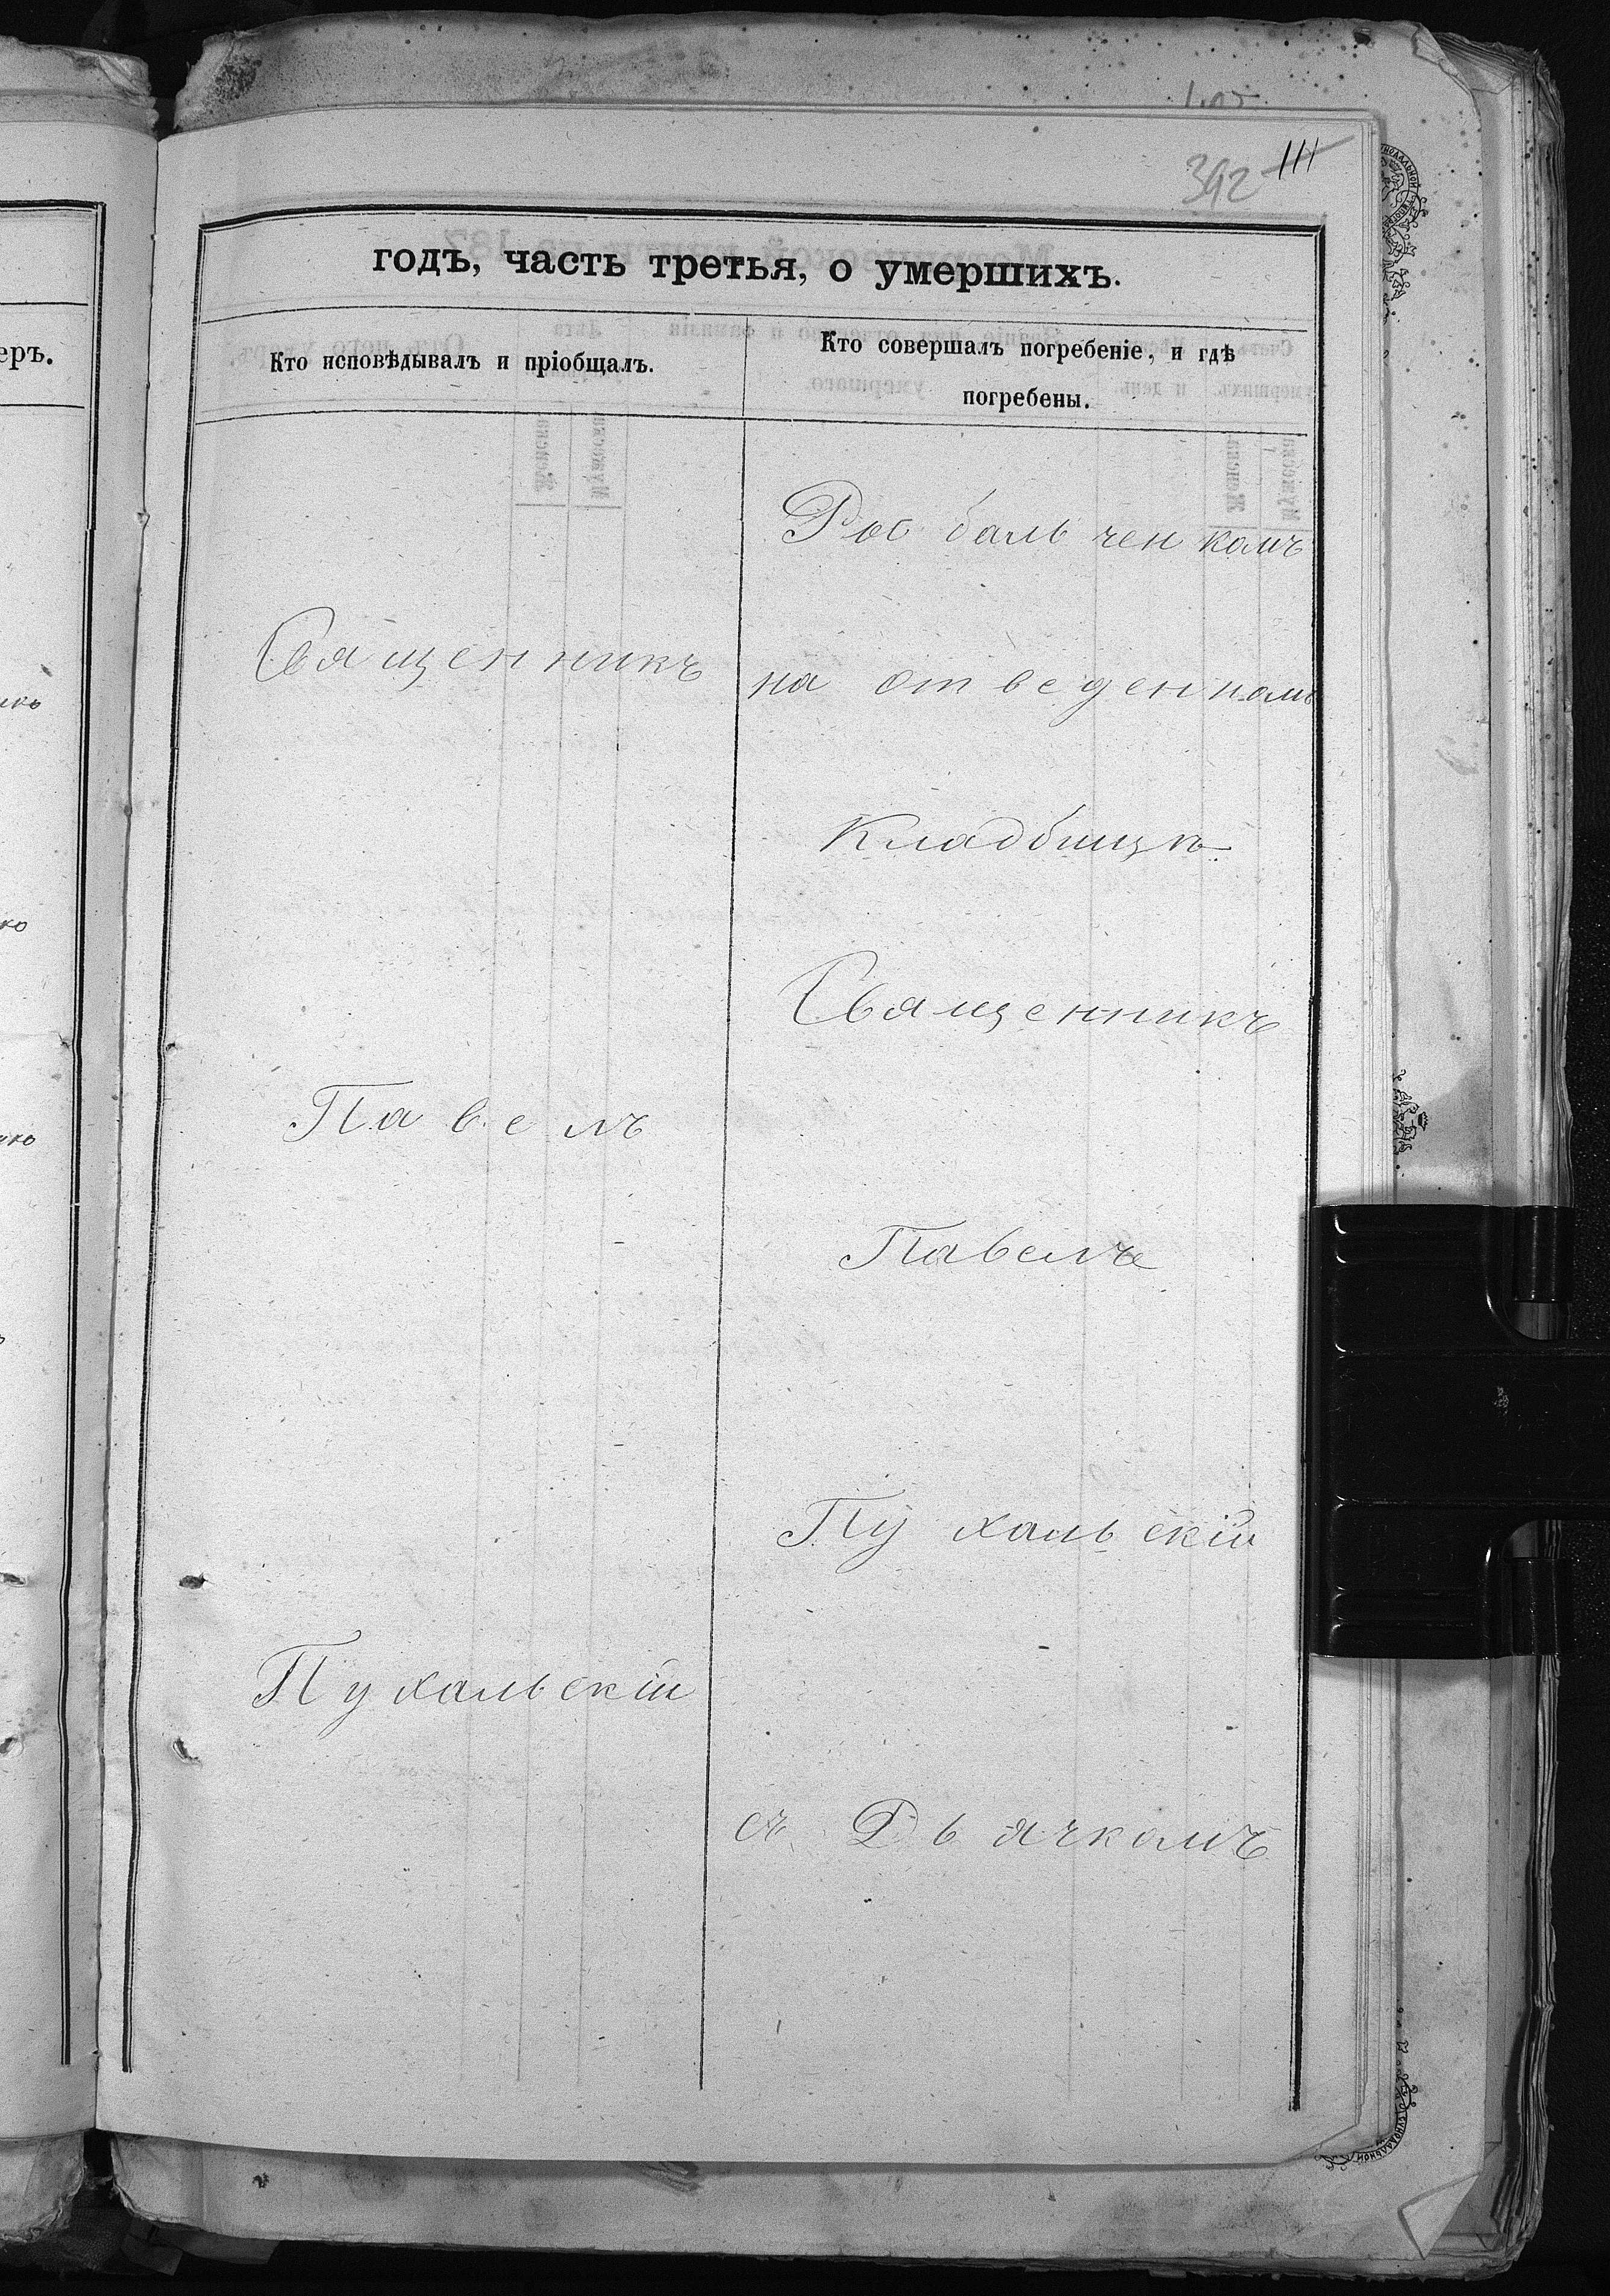 392 111
годъ, часть третья, о умершихъ.
еръ.
Кто исповѣдывалъ и пріобщалъ.
Кто совершалъ погребеніе, и гдѣ
погребены.
Священникъ
Павелъ
Пухальскій
Рос баль чен комъ
на отведенномъ
Кладбищѣ
Священникъ
Павелъ
Пухальскій
съ Дьячкомъ